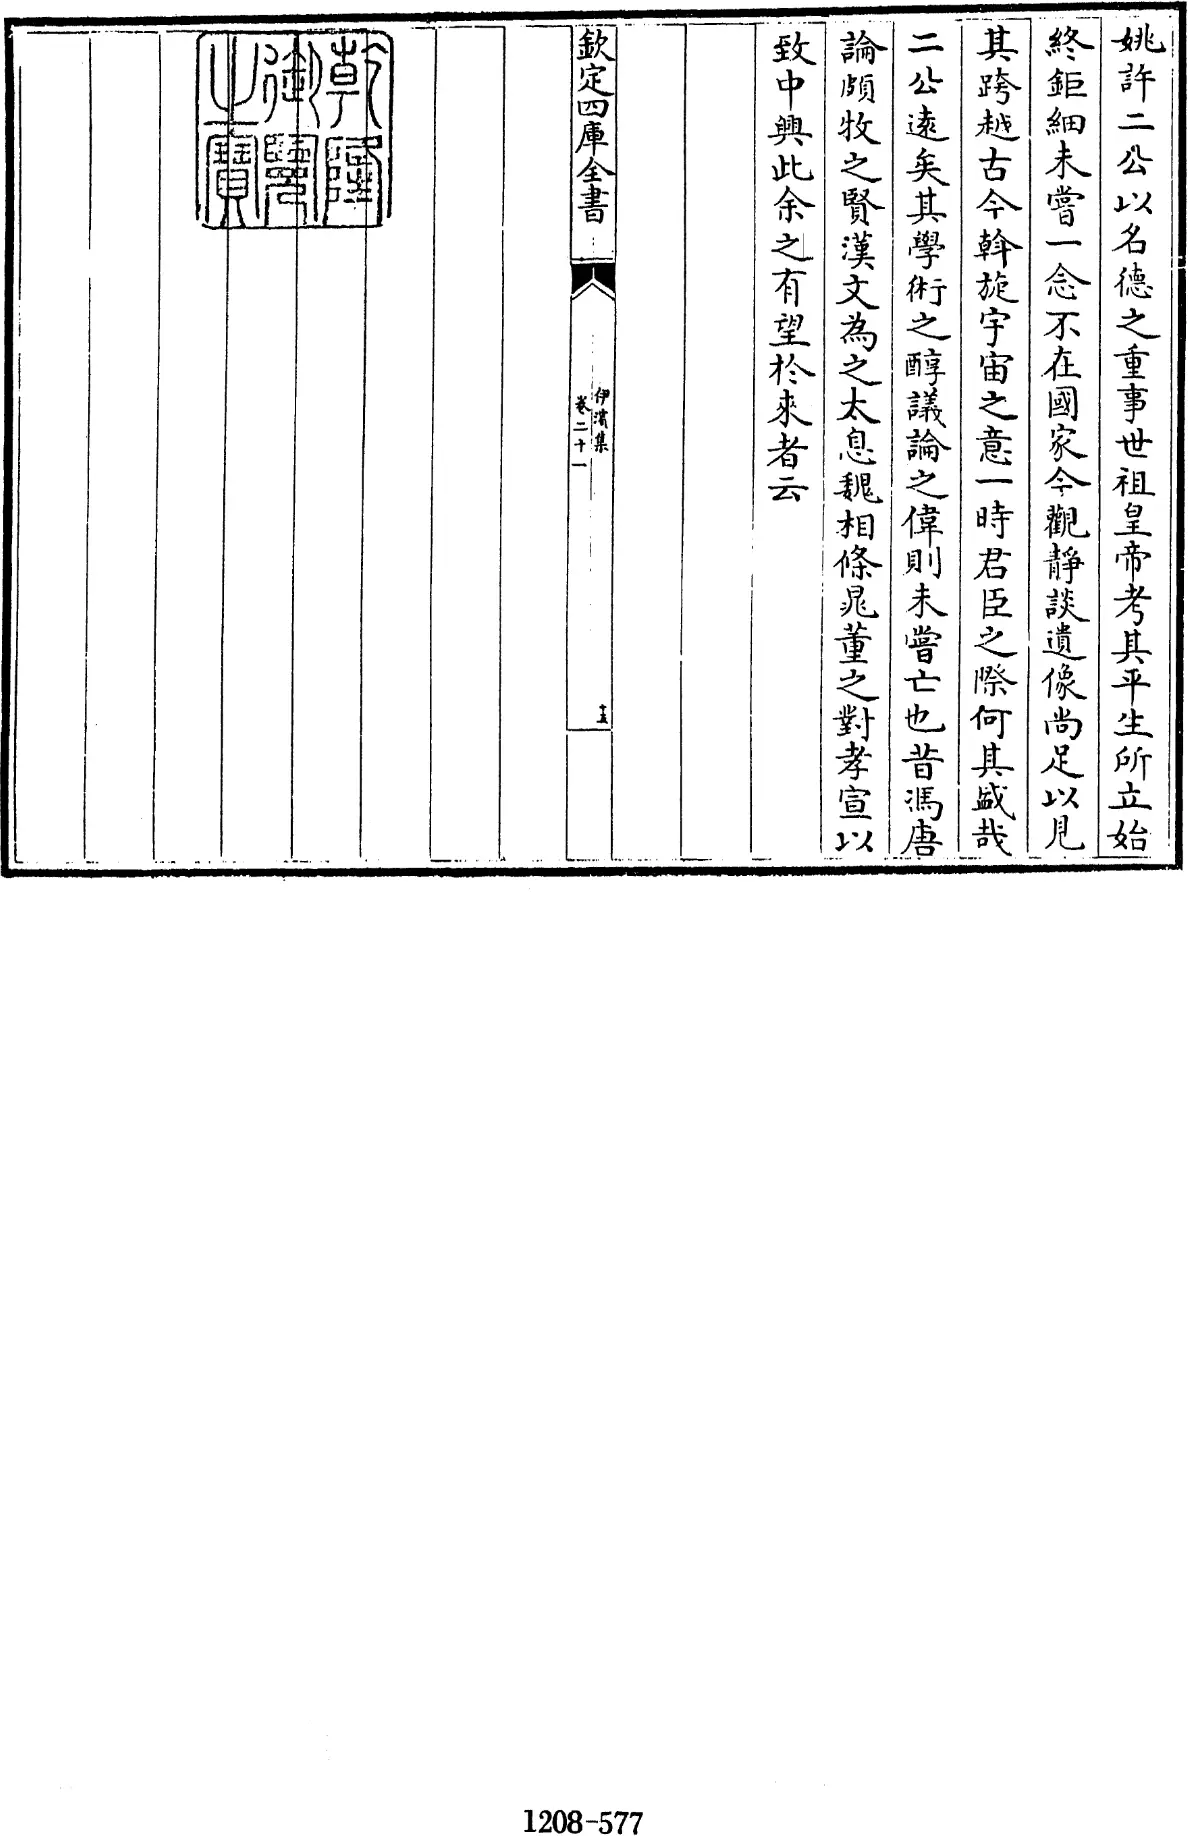 姚許二公以名德之重事世祖皇帝考其平生所立始
終鉅細未嘗一念不在國家今觀靜談遺像尚足以見
其跨越古今斡旋宇宙之意一時君臣之際何其盛哉
二公遠矣其學術之醇議論之偉則未嘗亡也昔馮唐
論頗牧之賢漢文為之太息魏相條晁董之對孝宣以
致中興此余之有望於來者云
欽定四庫全書
伊濱集
卷二十一
十五
乾隆
御覽
之寶
1208-577